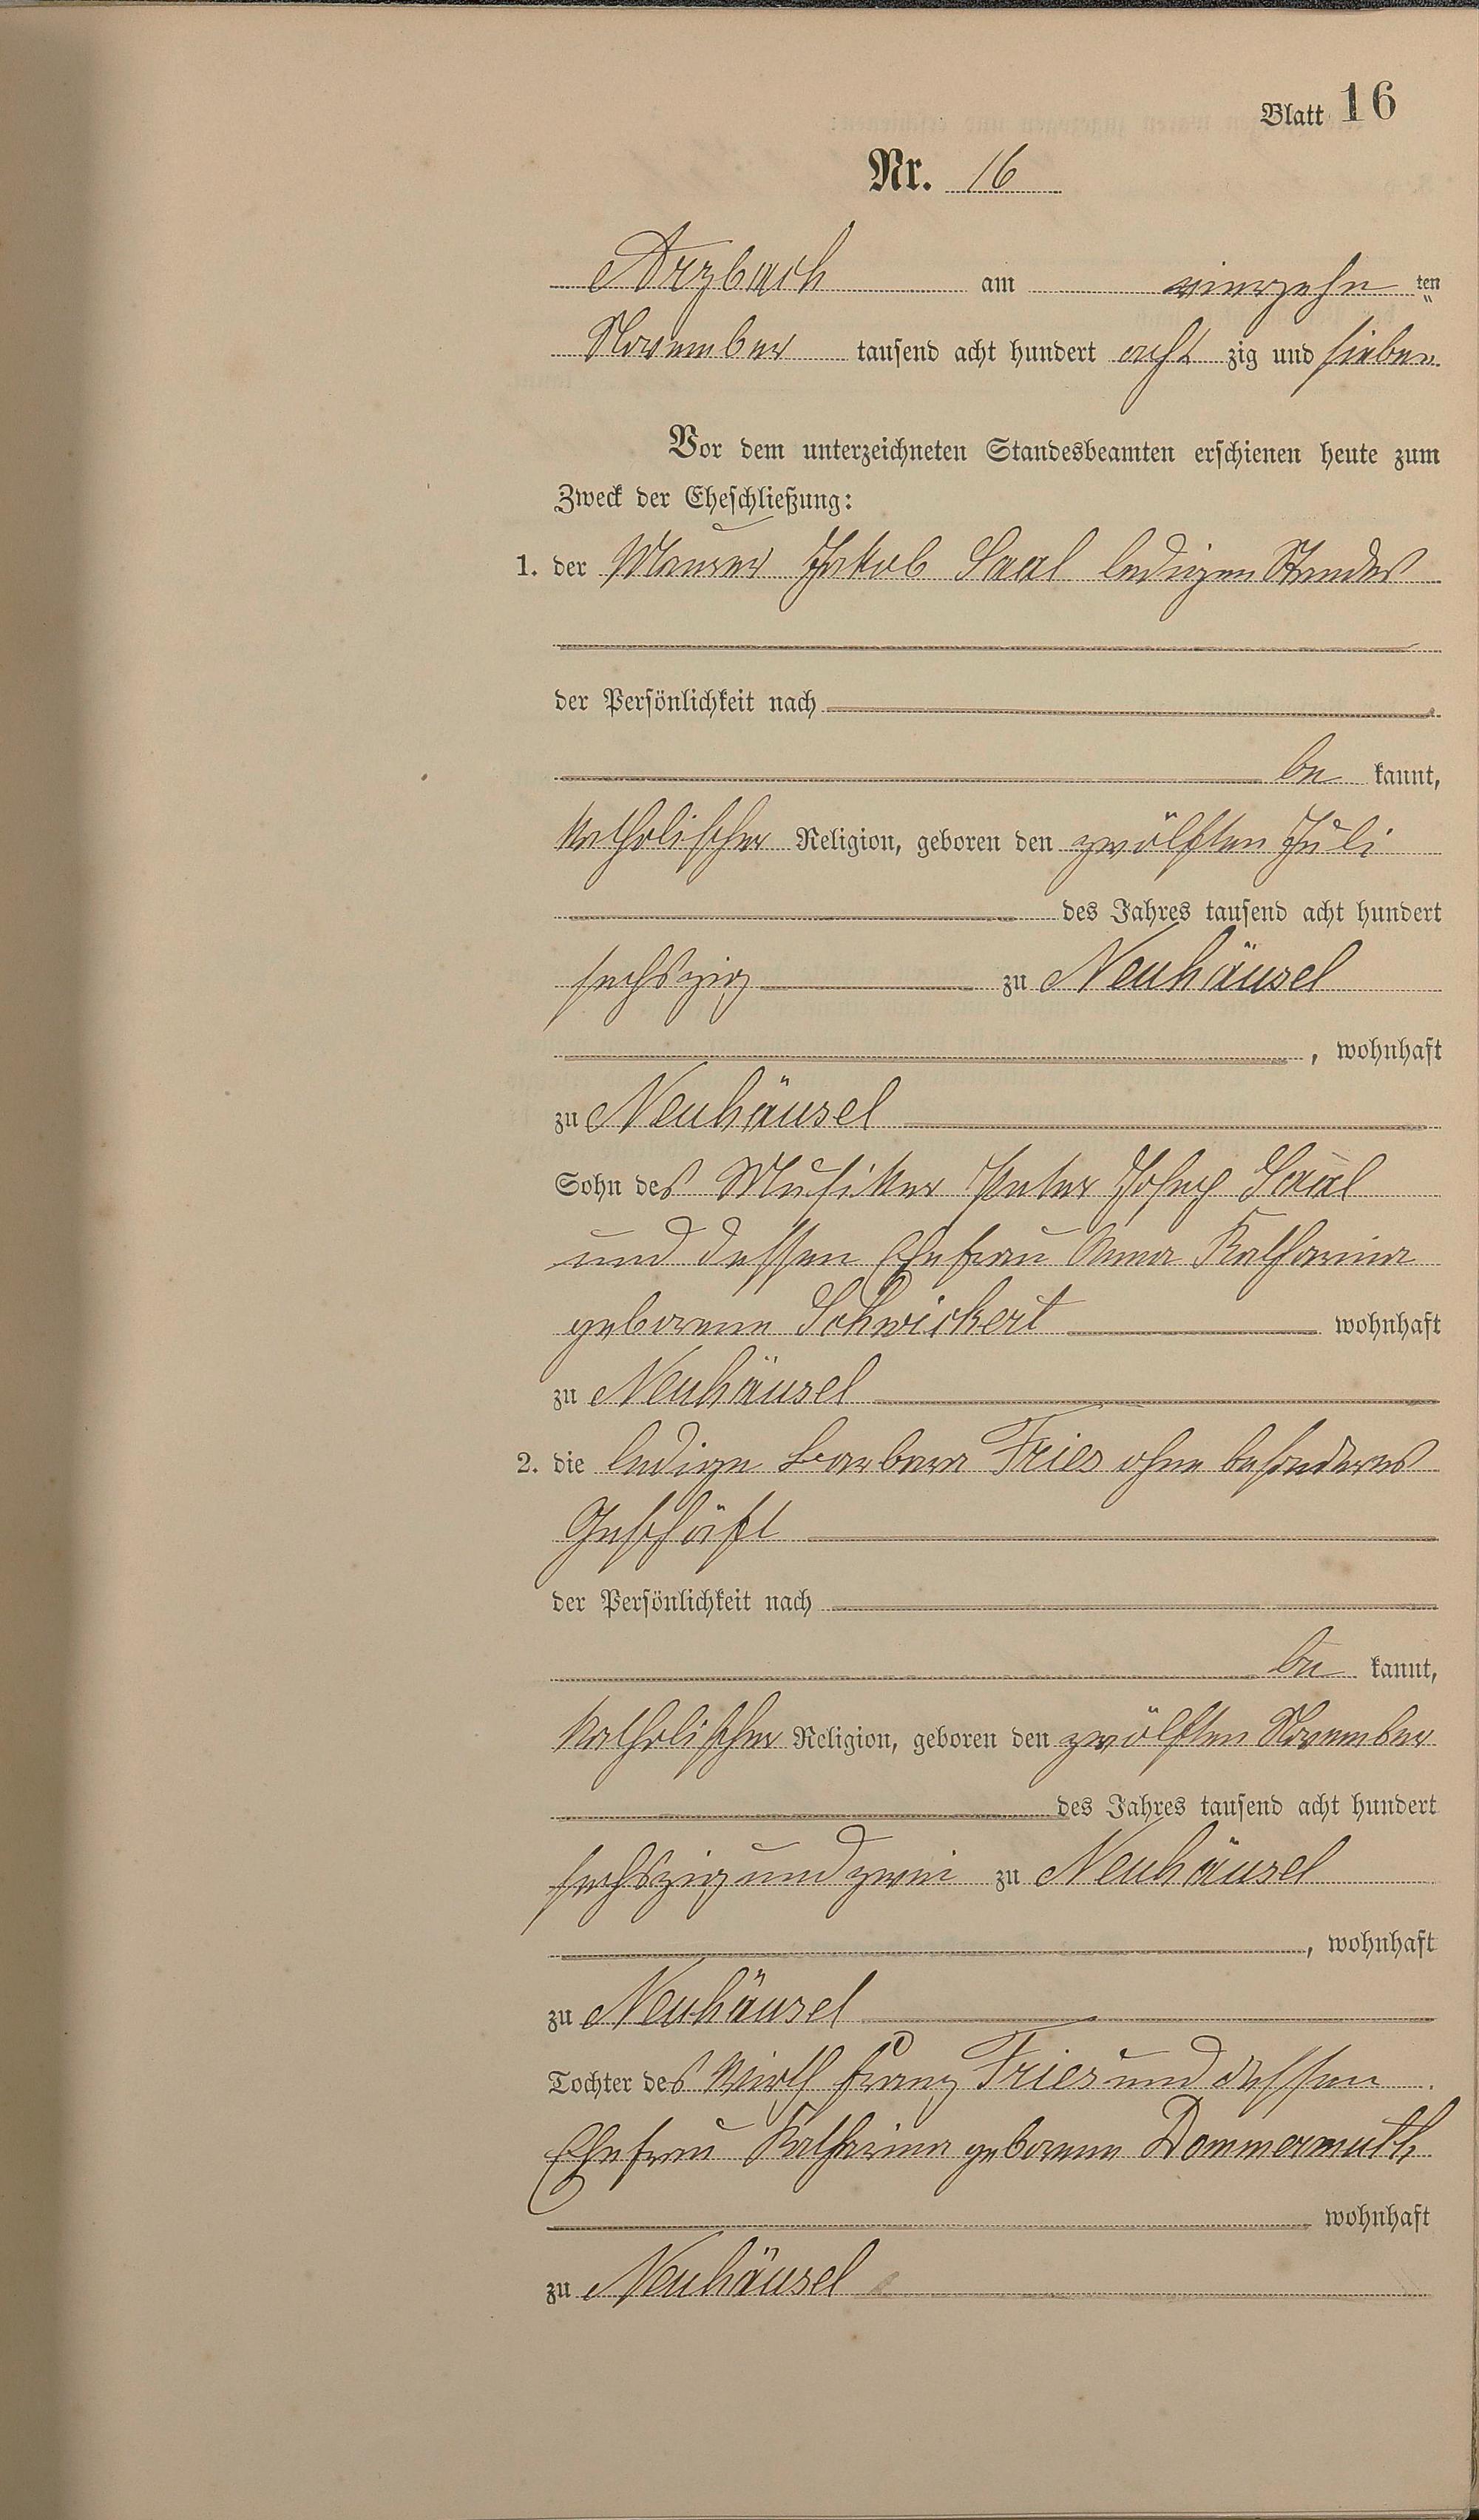 Blatt 16
Nr. 16
Arzbach am vierzehn ten
November tausend acht hundert acht zig und sieben
Vor dem unterzeichneten Standesbeamten erschienen heute zum
Zweck der Eheschließung:
1. der Maurer Jakob Saal ledigen Standes
der Persönlichkeit nach
be kannt,
katholischer Religion, geboren den zwölften Juli
des Jahres tausend acht hundert
sechszig zu Neuhäusel
, wohnhaft
zu Neuhäusel
Sohn des Musiker Peter Josep Saal
und dessen Ehefrau Anna Katharina
geborene Schwickert wohnhaft
zu Neuhäusel
2. die ledige Barbara Fries ohne besonderes
Geschäft
der Persönlichkeit nach
be kannt,
katholischer Religion, geboren den zwölften November
des Jahres tausend acht hundert
sechszig und zwei zu Neuhäusel
, wohnhaft
zu Neuhäusel
Tochter des Wirth Franz Fries und dessen
Ehefrau Katharina geborene Dommermuth
wohnhaft
zu Neuhäusel